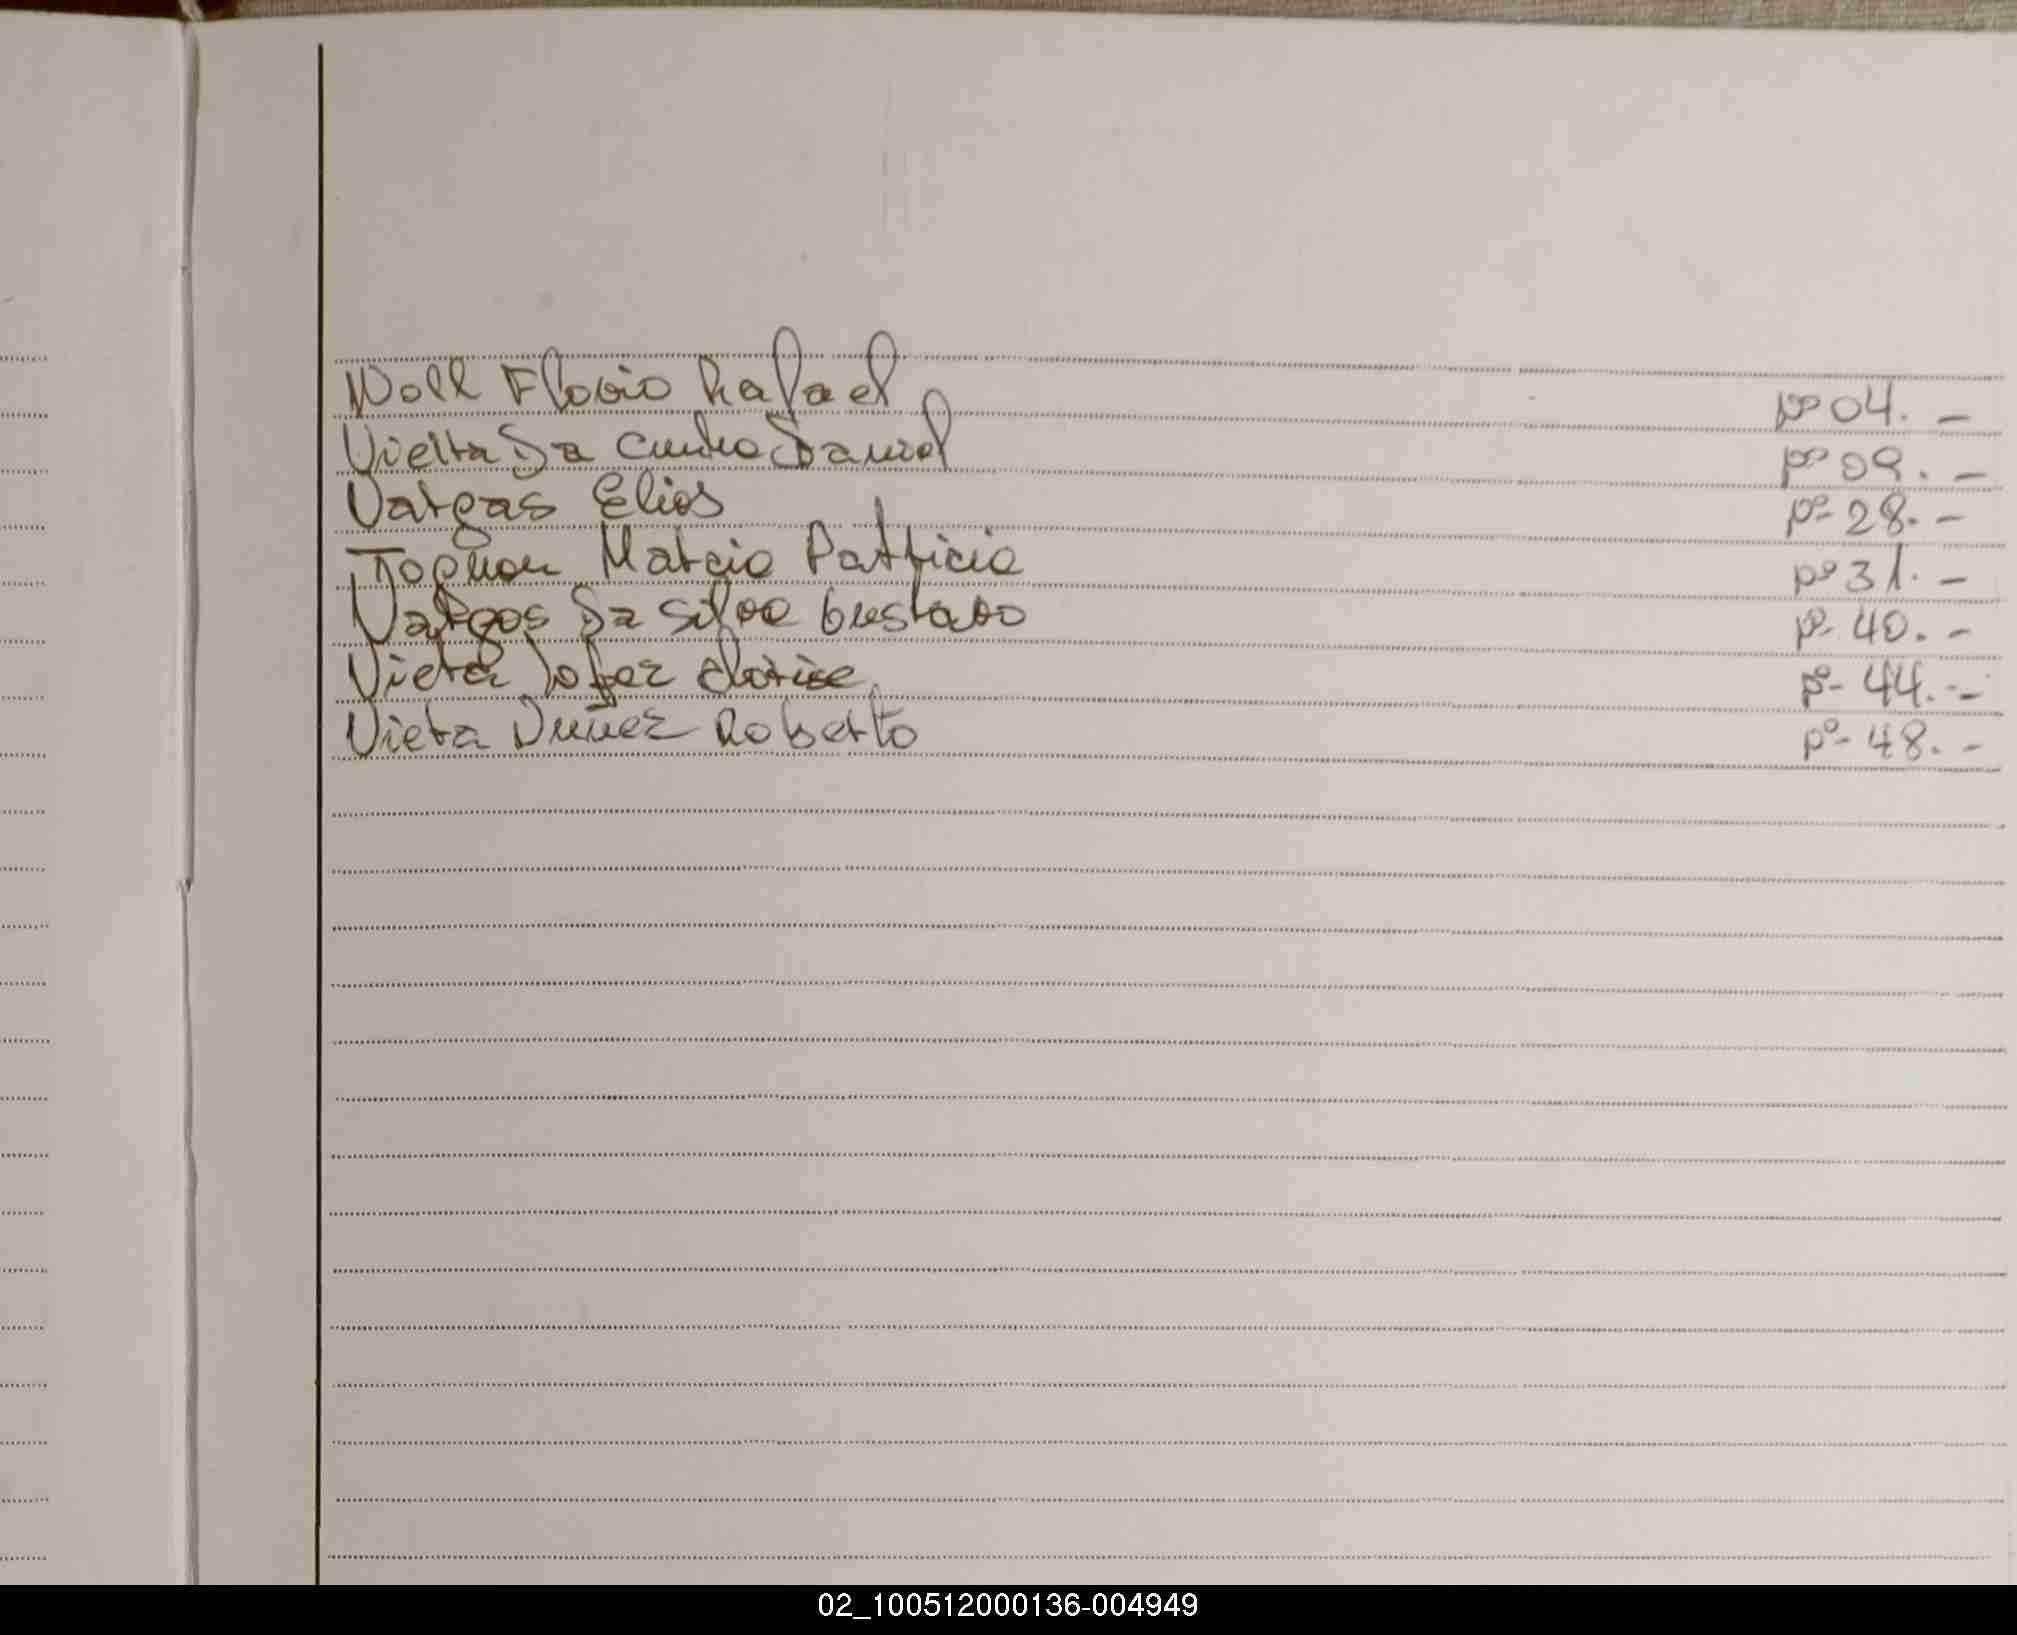 Noll Flavio Rafael pº 04. -
Vieira Da Cunha Daniel pº 09. -
Vargas Elias pº- 28. -
Tognon Marcia Patricia pº 31. -
Vargas Da Silva Gustavo pº- 40. -
Viera Lopez pº- 44. -
Viera Nuñez Roberto pº- 48. -
02_100512000136-004949